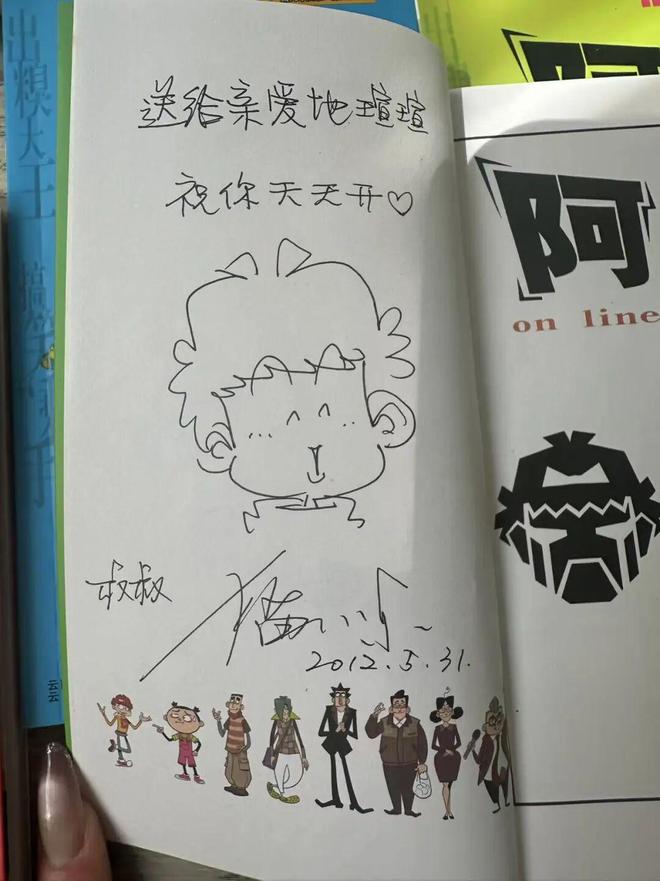 出糗大王
搞笑
手
送给亲爱地瑄瑄
祝你天天开♡
叔叔
猫小乐
2012.5.31.
阿
阿
on line
云
云